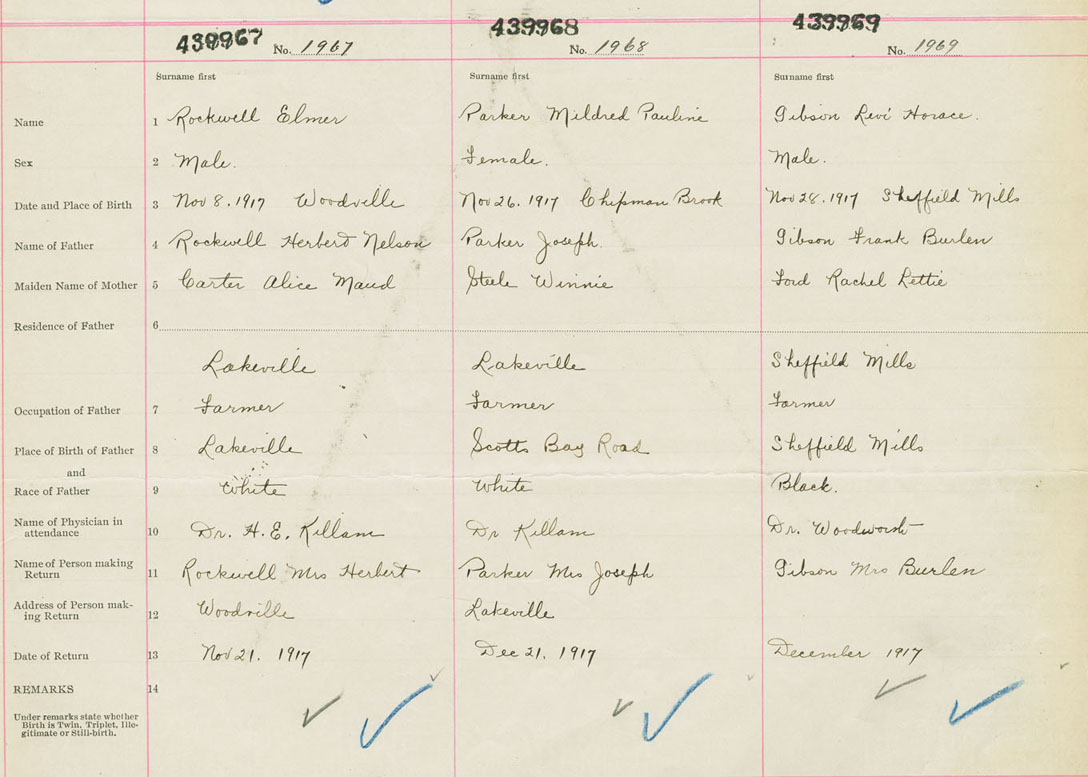 439967 No. 1967 439968 No. 1968 439969 No. 1969
Surname first Surname first Surname first
Name 1 Rockwell Elmer Parker Mildred Pauline Gibson Levi Horace.
Sex 2 Male. Female. Male.
Date and Place of Birth 3 Nov 8. 1917 Woodville Nov 26. 1917 Chipman Brook Nov 28. 1917 Sheffield Mills
Name of Father 4 Rockwell Herbert Nelson Parker Joseph. Gibson Frank Burlen
Maiden Name of Mother 5 Carter Alice Maud Steele Winnie Ford Rachel Lettie
Residence of Father 6
Lakeville Lakeville Sheffield Mills
Occupation of Father 7 Farmer Farmer Farmer
Place of Birth of Father 8 Lakeville Scotts Bay Road Sheffield Mills
and
Race of Father 9 White White Black.
Name of Physician in
attendance 10 Dr. H. E. Killam Dr Killam Dr. Woodworth
Name of Person making
Return 11 Rockwell Mrs Herbert Parker Mrs Joseph Gibson Mrs Burlen
Address of Person mak-
ing Return 12 Woodville Lakeville
Date of Return 13 Nov 21. 1917 Dec 21. 1917 December 1917
REMARKS 14
Under remarks state whether
Birth is Twin, Triplet, Ille-
gitimate or Still-birth.